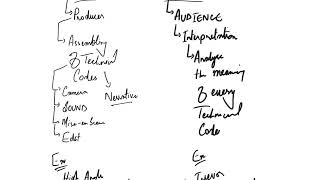 Producer
Assembling
of Technical
Codes
Camera
SOUND
Mise-en Scene
Edit
Narrative
Ex
High Angle
AUDIENCE
Interpretation
Analyse
the meaning
of every
Technical
Code
Ex